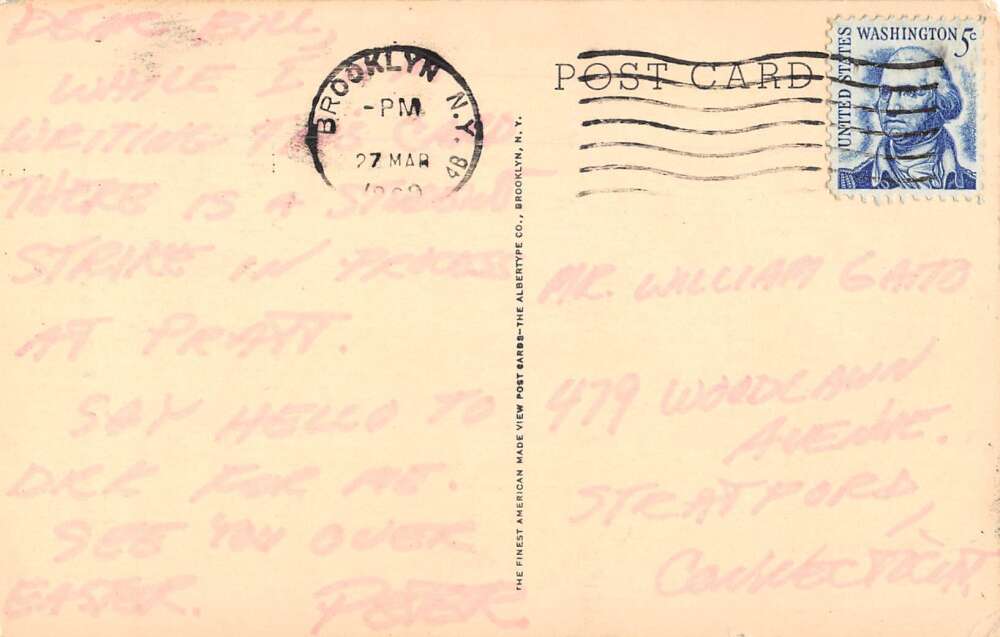 DEAR BILL,
WHILE I
WRITING THIS CARD
THERE IS A STUDENT
STRIKE IN PROCESS
AT PRATT.
SAY HELLO TO
DRK FOR ME.
SEE YOU OVER
EASTER. PETER
BROOKLYN N.Y. 4B
-PM
27 MAR
THE FINEST AMERICAN MADE VIEW POST CARDS-THE ALBERTYPE CO., BROOKLYN, N.Y.
POST CARD
UNITED STATES
WASHINGTON 5c
MR. WILLIAM
479 WOODLAWN
AVENUE.
STRATFORD,
CONNECTICUT